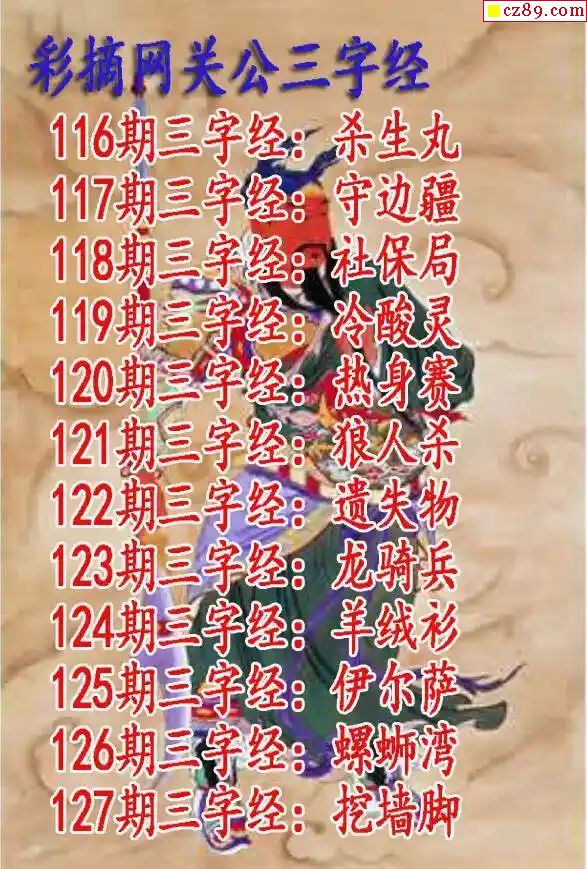 cz89.com
彩摘网关公三字经
116期三字经：杀生丸
117期三字经：守边疆
118期三字经：社保局
119期三字经：冷酸灵
120期三字经：热身赛
121期三字经：狼人杀
122期三字经：遗失物
123期三字经：龙骑兵
124期三字经：羊绒衫
125期三字经：伊尔萨
126期三字经：螺蛳湾
127期三字经：挖墙脚